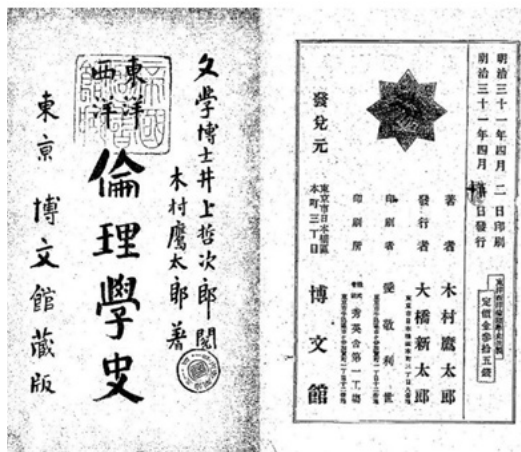 文學博士井上哲次郎閲
木村鷹太郎著
東洋
西洋
倫理學史
東京 博文館藏版
明治三十一年四月 二 日印刷
明治三十一年四月 日發行
定價金參拾五錢
著者 木村鷹太郎
發行者 大橋新太郎
印刷者 愛敬利世
印刷所 秀英舍第一工場
發兌元 東京市日本橋區本町三丁目 博文館